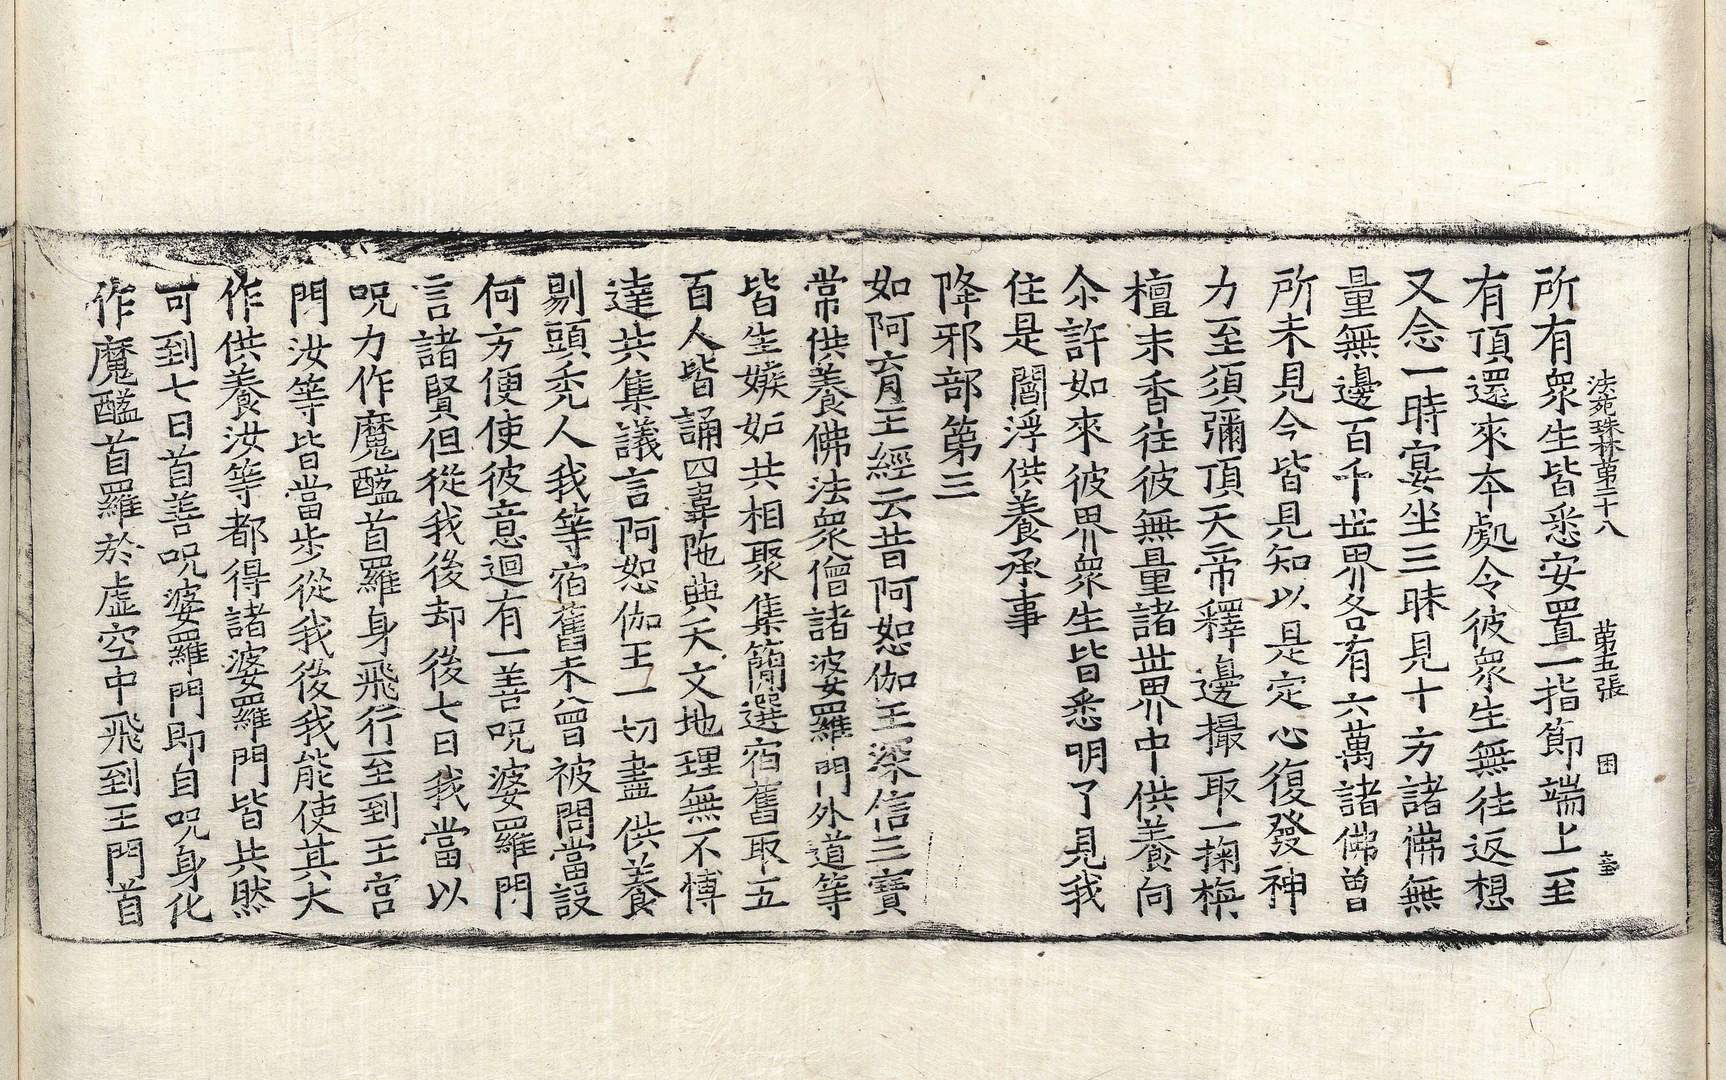 法苑珠林第二十八　第五張　困
所有衆生皆悉安置一指節端上至
有頂還來本處令彼衆生無往返想
又念一時宴坐三昧見十方諸佛無
量無邊百千世界各有六萬諸佛曾
所未見今皆見知以是定心復發神
力至須彌頂天帝釋邊撮取一掬栴
檀末香往彼無量諸世界中供養向
尒許如來彼界衆生皆悉明了見我
住是閻浮供養承事
降邪部第三
如阿育王經云昔阿恕伽王深信三寶
常供養佛法衆僧諸婆羅門外道等
皆生嫉妬共相聚集簡選宿舊取五
百人皆誦四韋陁典天文地理無不博
達共集議言阿恕伽王一切盡供養
剔頭禿人我等宿舊未曾被問當設
何方便使彼意迴有一善呪婆羅門
言諸賢但從我後却後七日我當以
呪力作魔醯首羅身飛行至到王宮
門汝等皆當步從我後我能使其大
作供養汝等都得諸婆羅門皆共然
可到七日首善呪婆羅門即自呪身化
作魔醯首羅於虛空中飛到王門首